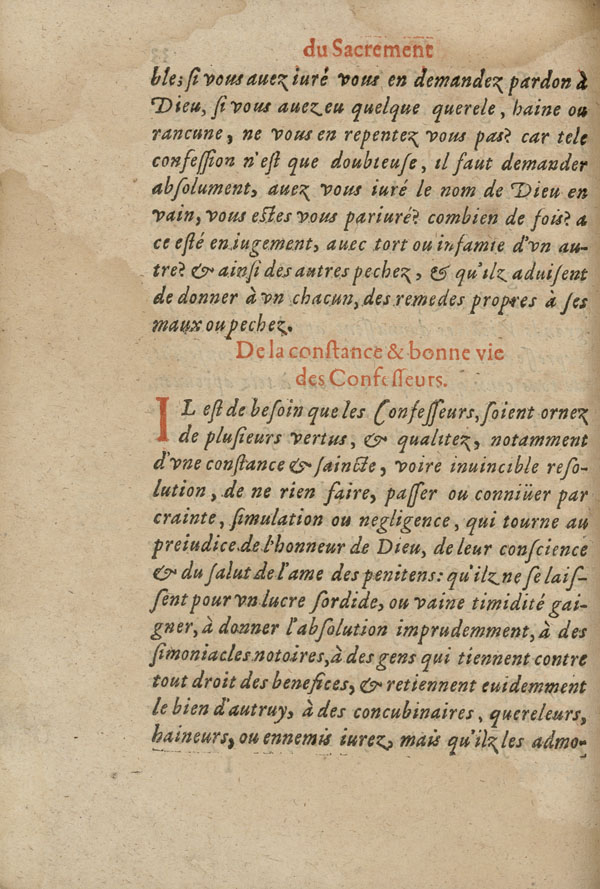 du Sacrement
ble; si vous auez iuré vous en demandez pardon à
Dieu, si vous auez eu quelque querele, haine ou
rancune, ne vous en repentez vous pas? car tele
confession n'est que doubteuse, il faut demander
absolument, auez vous iuré le nom de Dieu en
vain, vous estes vous pariuré? combien de fois? a
ce esté en iugement, auec tort ou infamie d'vn au-
tre? & ainsi des autres pechez, & qu'ilz aduisent
de donner à vn chacun, des remedes propres à ses
maux ou pechez.
De la constance & bonne vie
des Confesseurs.
IL est de besoin que les Confesseurs, soient ornez
de plusieurs vertus, & qualitez, notamment
d'vne constance & saincte, voire inuincible reso-
lution, de ne rien faire, passer ou conniüer par
crainte, simulation ou negligence, qui tourne au
preiudice de l'honneur de Dieu, de leur conscience
& du salut de l'ame des penitens: qu'ilz ne se lais-
sent pour vn lucre sordide, ou vaine timidité gai-
gner, à donner l'absolution imprudemment, à des
simoniacles notoires, à des gens qui tiennent contre
tout droit des benefices, & retiennent euidemment
le bien d'autruy, à des concubinaires, quereleurs,
haineurs, ou ennemis iurez, mais qu'ilz les admo-